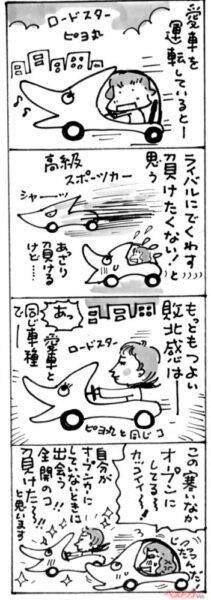 愛車を
運転していると―
ロードスター
ピヨ丸
ライバルにでくわす
負けたくない!と
思う
高級
スポーツカー
シャーッ
あっさり
負ける
けど……
もっともつよい
敗北感は
ロードスター
あっ、
愛車と
同じ車種
で―
ピヨ丸と同じコ
この寒いなか
オープンに
してる〜!
カコイイ〜!
自分が
オープンカーに
していないときに
出会う
全開のコ
負けた〜!!
と思います